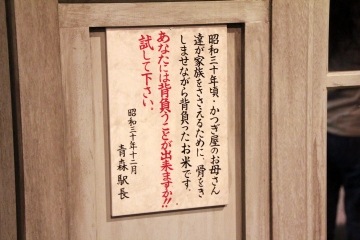 昭和三十年頃・かつぎ屋のお母さん
達が家族をささえるために、骨をき
しませながら背負ったお米です。
あなたには背負うことが出来ますか!!
試して下さい。
昭和三十年十二月
青森駅長